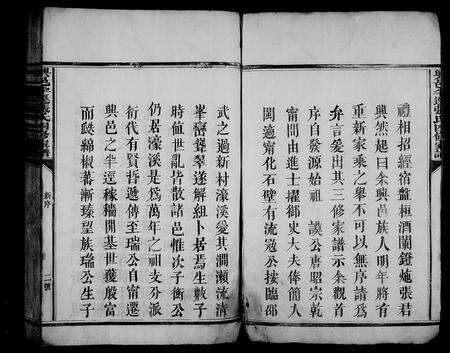 禮相招經宿盤桓酒闌鐙灺張君
興然起曰朱與邑族人明年將有
重新家乘之舉不可以無序請爲
弁言爰出其三修家譜示余觀首
序自發源始祖 謨公唐昭宗乾
甯間由進士擢御史大夫俸簡人
閩德甯化石壁有流寇公按臨邵
武之過新村濠溪愛其澗瀨流清
峯巒聳翠遂解組卜居焉生數子
時値世亂皆散諸邑惟次子衡公
仍居濠溪是爲萬年之祖支分派
衍代有賢哲遞傳至瑞公自甯遷
興邑之半逕稼穡開基世獲殷富
而瓞綿椒蕃漸臻望族瑞公生子
新序
二號